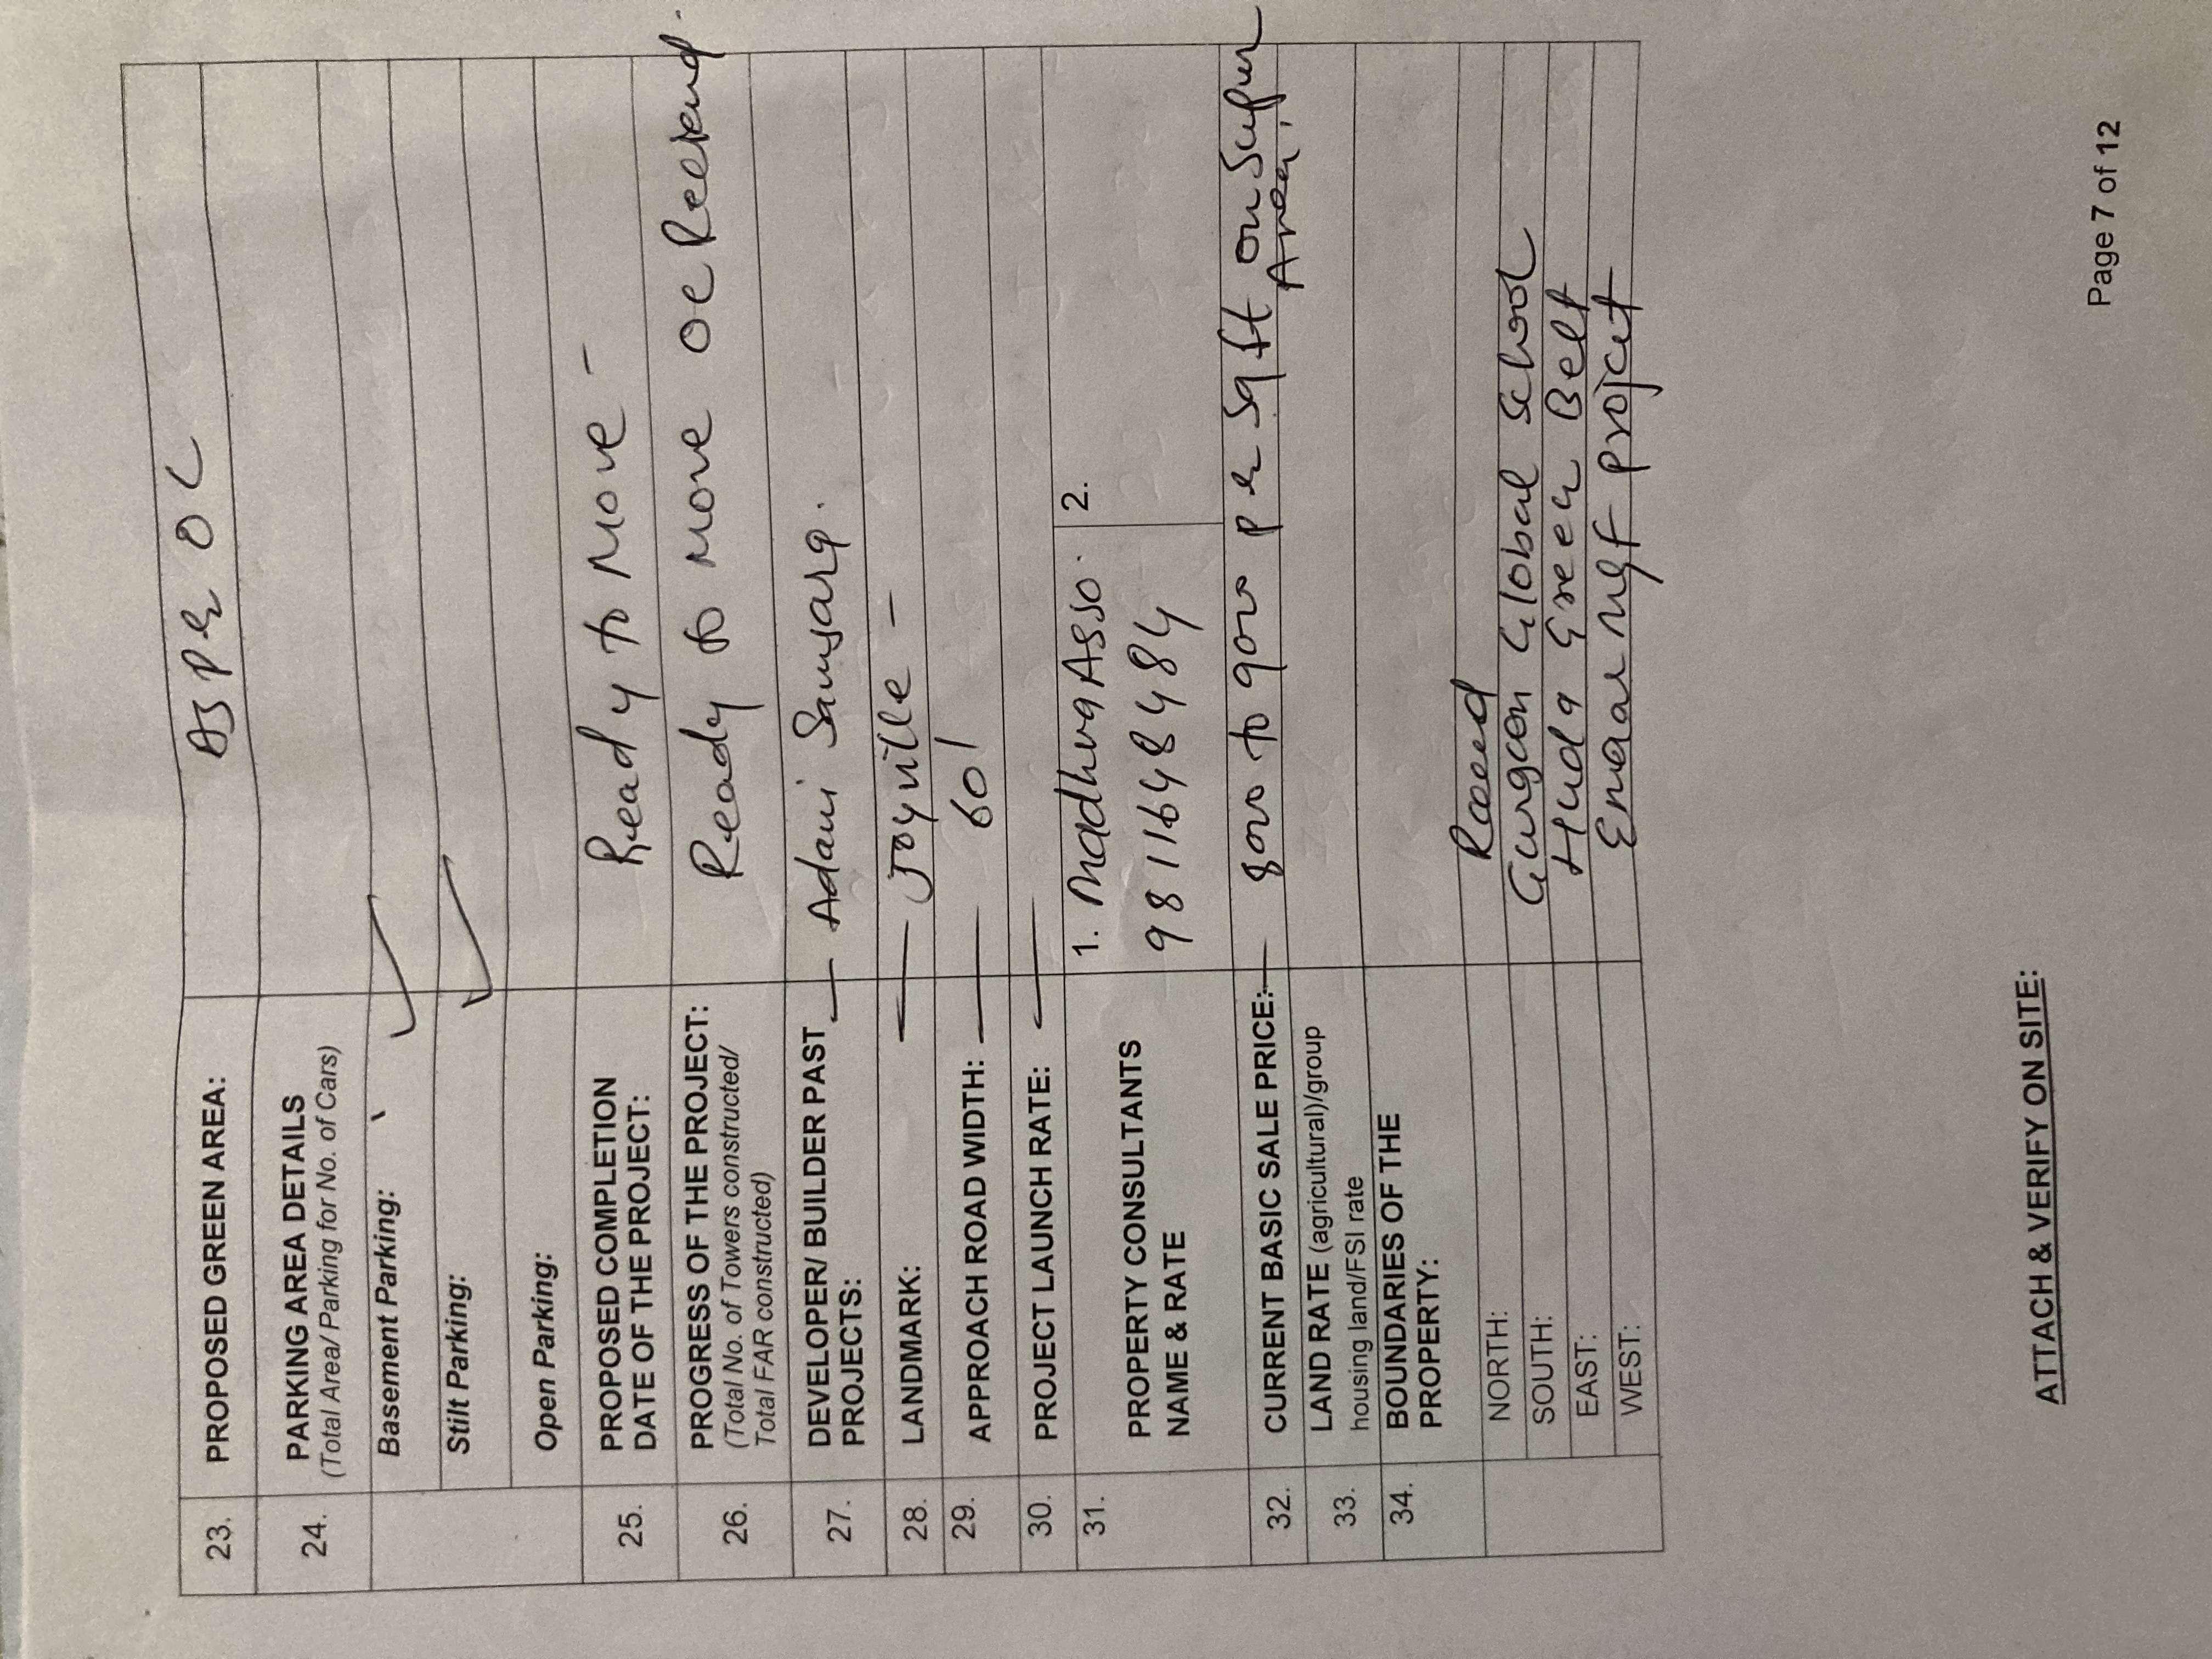 23. PROPOSED GREEN AREA: As per OC
24. PARKING AREA DETAILS
(Total Area/ Parking for No. of Cars)
Basement Parking: ✓
Stilt Parking: ✓
Open Parking:
25. PROPOSED COMPLETION
DATE OF THE PROJECT: Ready to Move -
26. PROGRESS OF THE PROJECT: Ready to move OC
(Total No. of Towers constructed/
Total FAR constructed)
27. DEVELOPER/ BUILDER PAST — Adani Samsara.
PROJECTS:
28. LANDMARK: — Joyville -
29. APPROACH ROAD WIDTH: — 60'
30. PROJECT LAUNCH RATE: —
31. PROPERTY CONSULTANTS
NAME & RATE
1. Madhva Asso.
9811648484
2.
32. CURRENT BASIC SALE PRICE: — 8000 to 9000 per sqft on Super
Area.
33. LAND RATE (agricultural)/group
housing land/FSI rate
34. BOUNDARIES OF THE
PROPERTY:
NORTH: Road
SOUTH: Gurgaon Global School
EAST: Huda Green Belt
WEST: Emaar MGF Project
ATTACH & VERIFY ON SITE:
Page 7 of 12